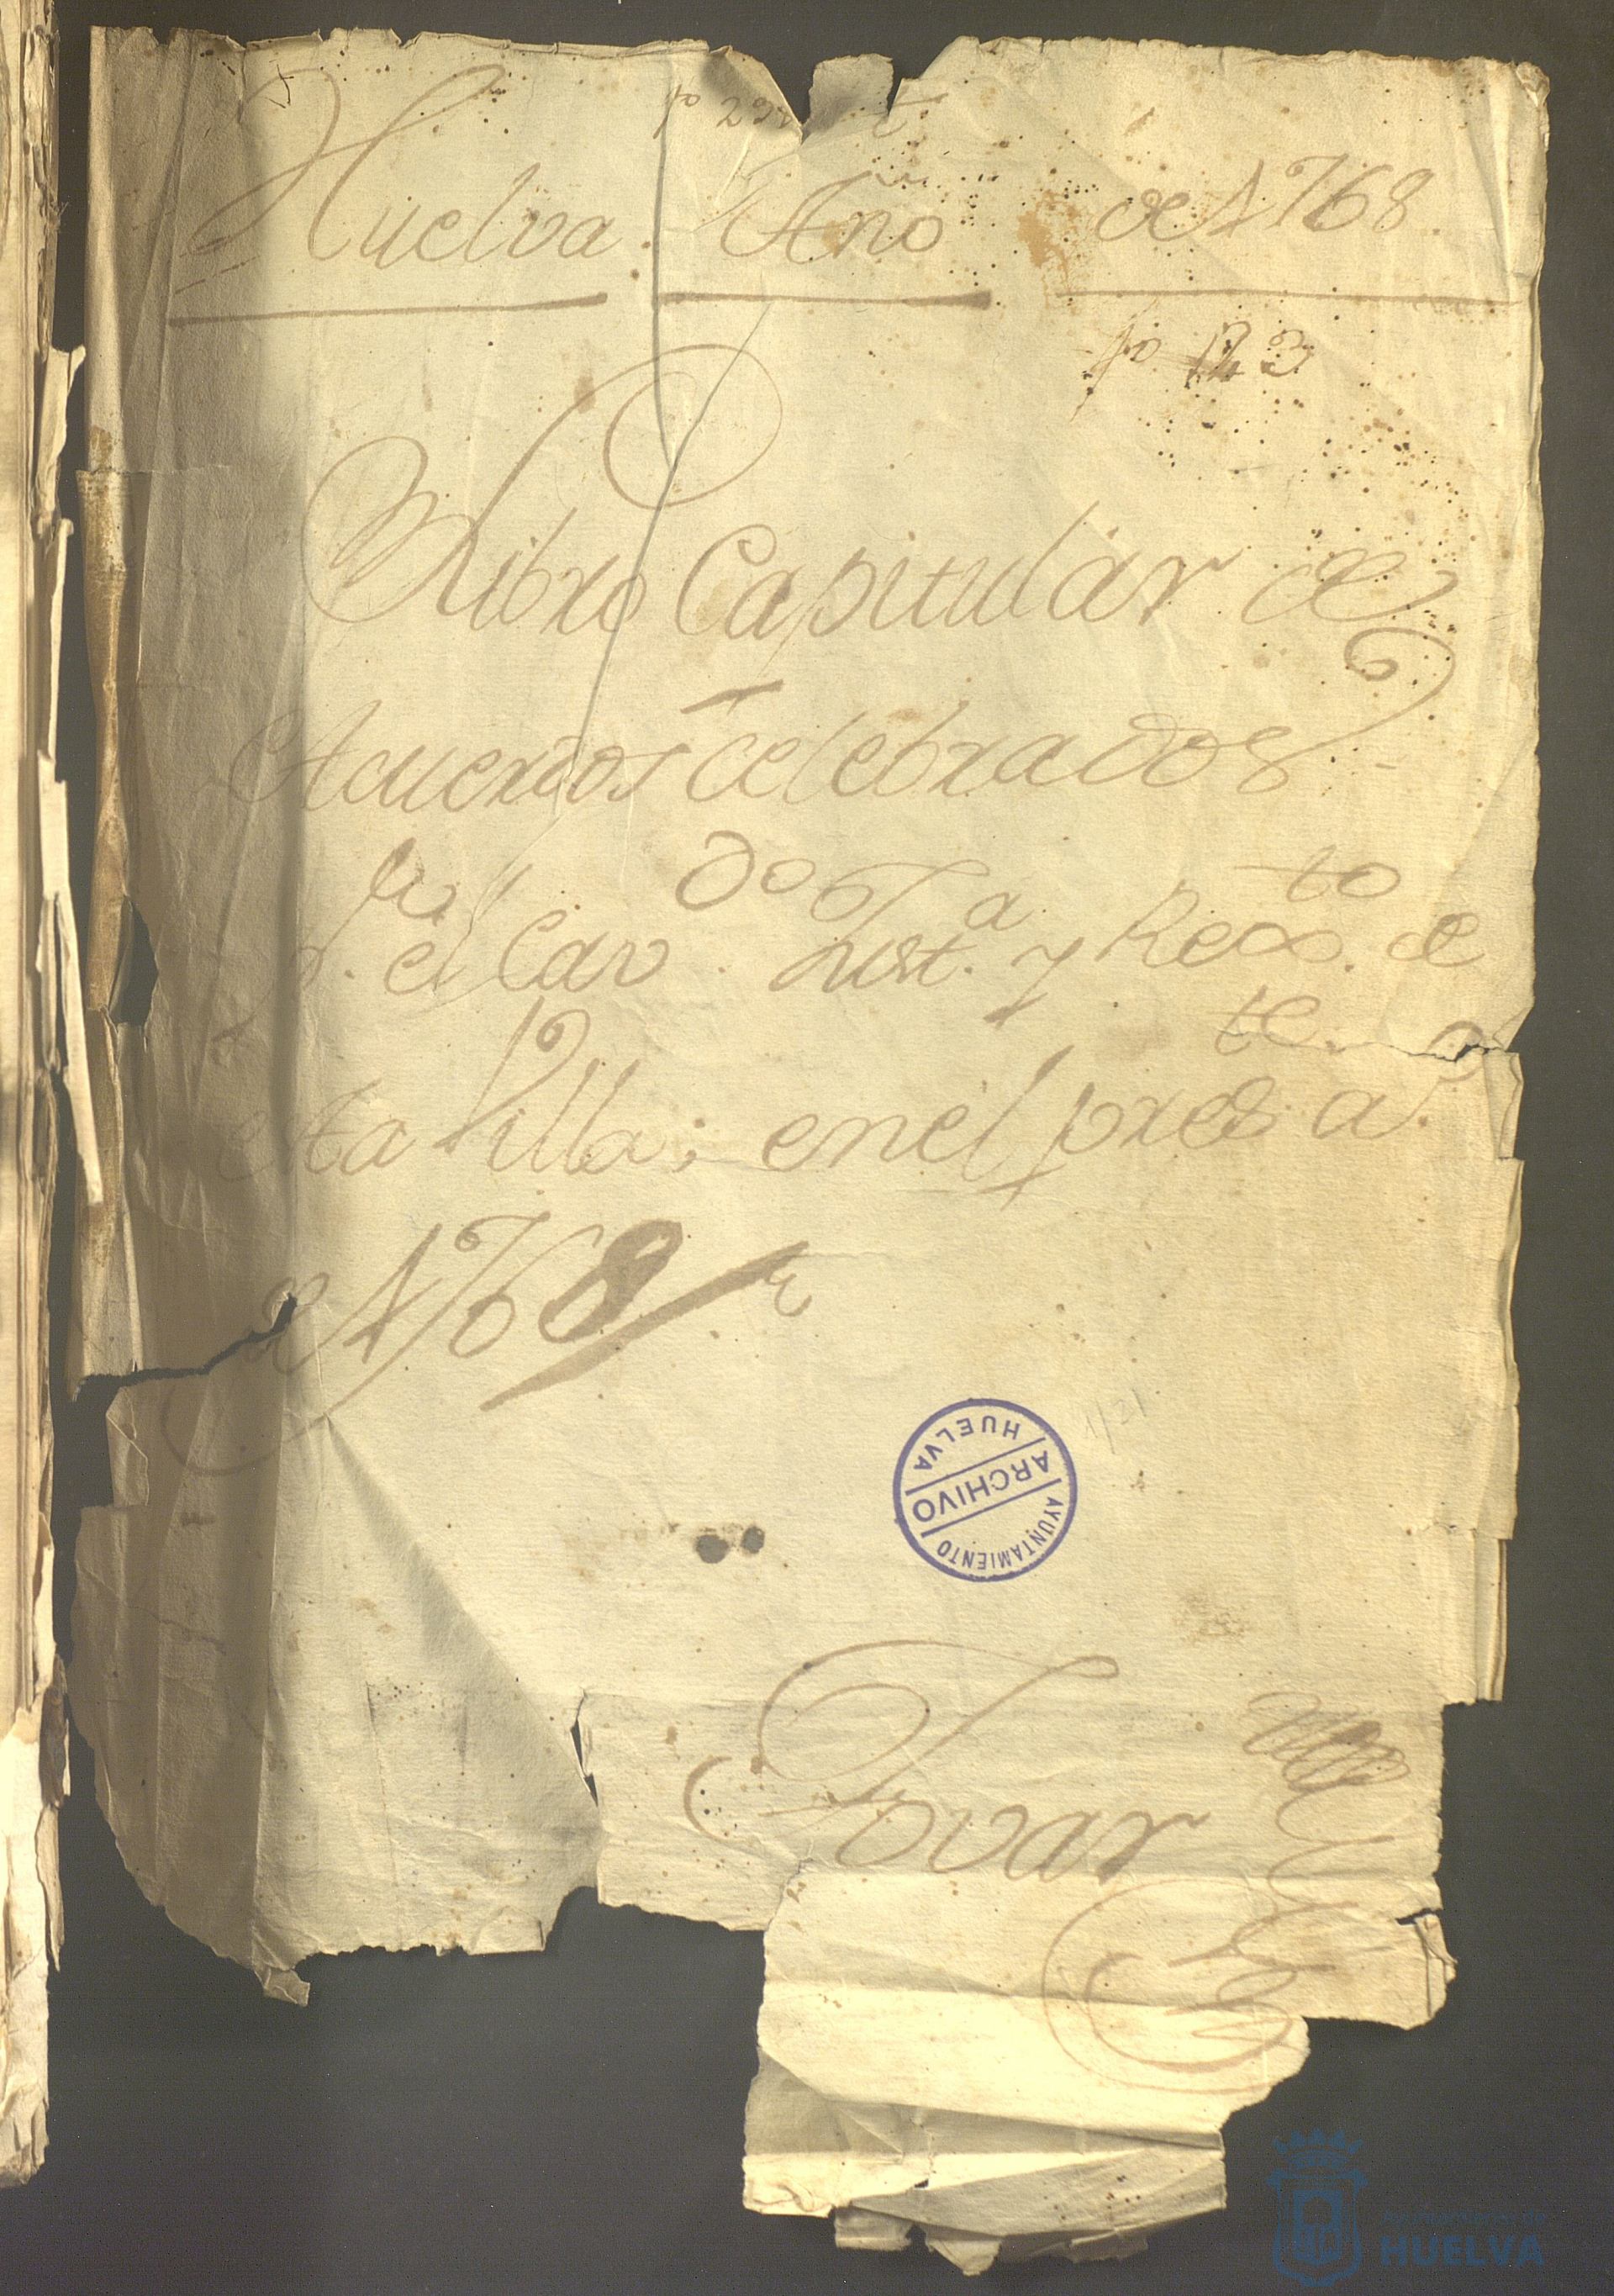 Huelva. Año de 1768
fo 123
Libro Capitular de
Acuerdos celebrados
pr. el Cavdo. Justa. y Rexto. de
esta Villa; en el preste. ao.
de 1768
HUELVA
ARCHIVO
AYUNTAMIENTO
Tovar
Ayuntamiento de
HUELVA